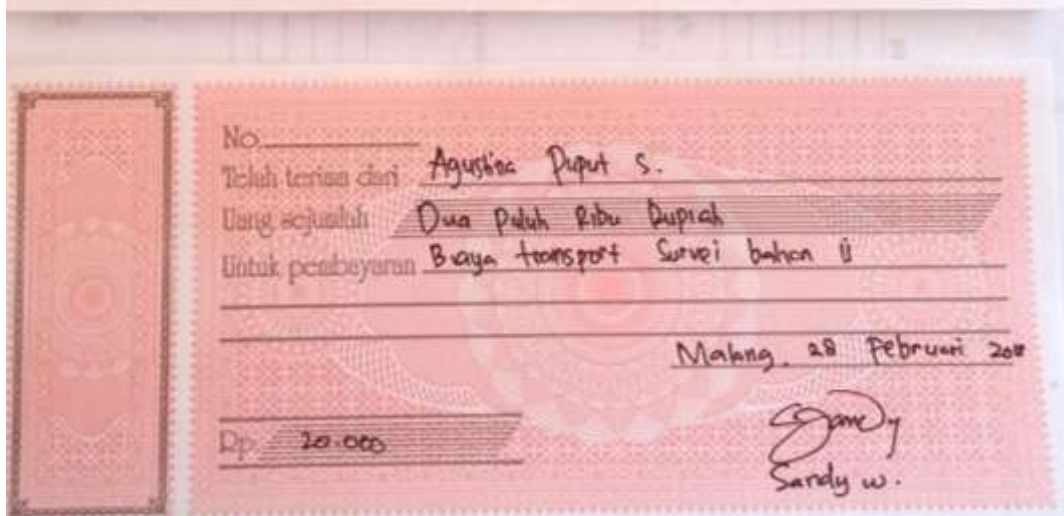 No.
Telah terima dari Agustina Puput S.
Uang sejumlah Dua Puluh Ribu Rupiah
Untuk pembayaran Biaya transport Survei bahan ii
Malang, 28 Februari
Rp. 20.000
Sandy w.